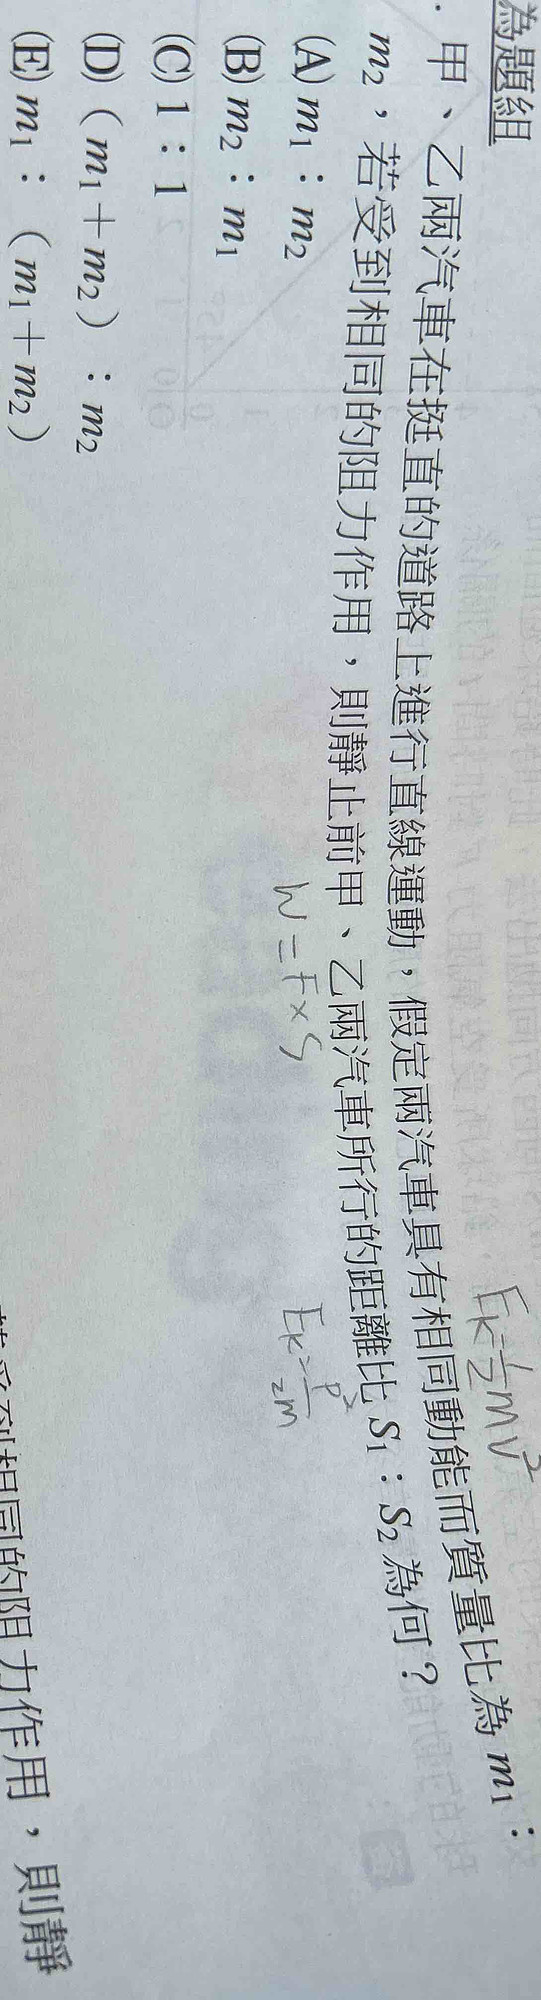 為題組
. 甲、乙兩汽車在挺直的道路上進行直線運動，假定兩汽車具有相同動能而質量比為 m₁：
m₂，若受到相同的阻力作用，則靜止前甲、乙兩汽車所行的距離比 S₁：S₂ 為何？
Eₖ=½mv²
W=F×S
Eₖ=p²/2m
(A) m₁：m₂
(B) m₂：m₁
(C) 1：1
(D)（m₁＋m₂）：m₂
(E) m₁：（m₁＋m₂）
受到相同的阻力作用，則靜